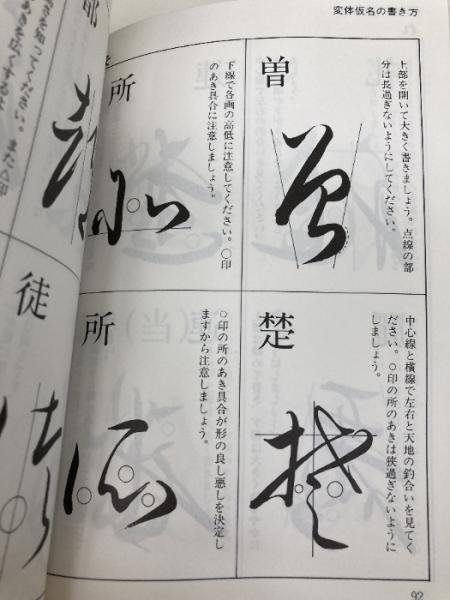 変体仮名の書き方
曽
上部を開いて大きく書きましょう。点線の部
分は長過ぎないようにしてください。
所
下線で各画の高低に注意してください。○印
のあき具合に注意しましょう。
楚
中心線と横線で左右と天地の釣合いを見てく
ださい。○印の所のあきは狭過ぎないように
しましょう。
所
○印の所のあき具合が形の良し悪しを決定し
ますから注意しましょう。
を知ってください。また△印
あきを広くするよ
徒
92